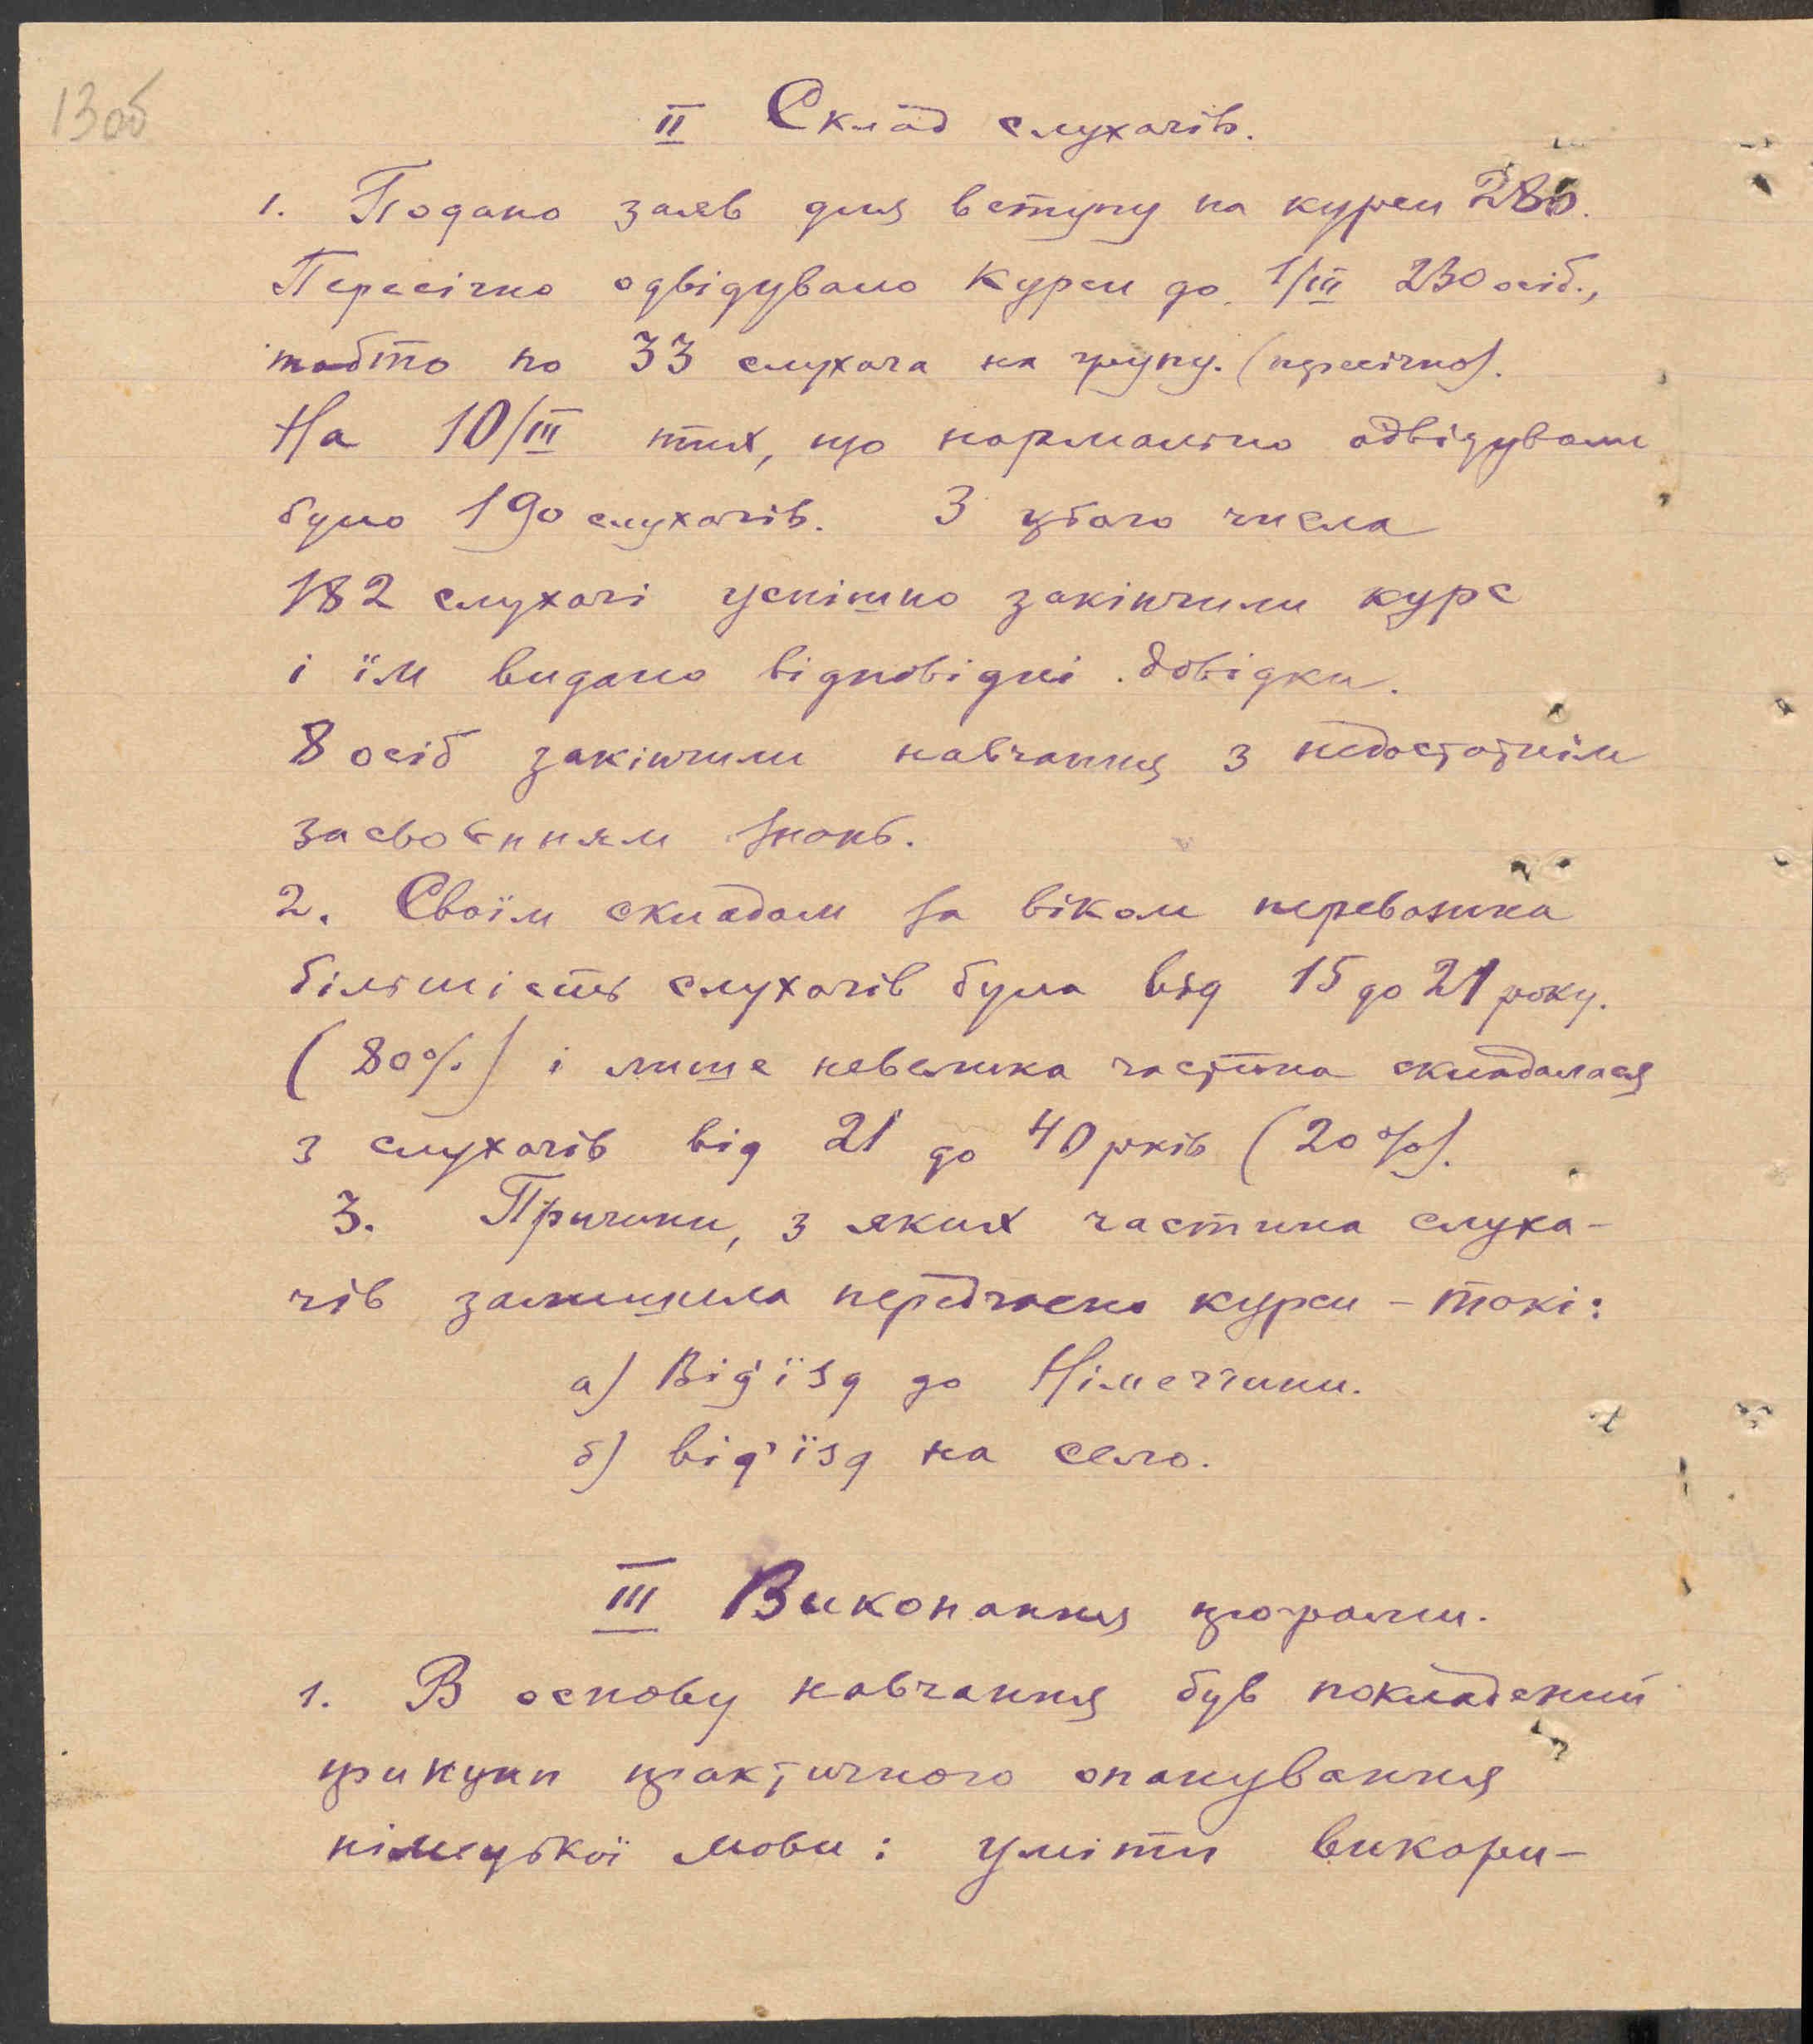 13об
II Склад слухачів.
1. Подано заяв для вступу на курси 286.
Пересічно одвідувало курси до 1/III 230 осіб.,
тобто по 33 слухача на групу. (пересічно).
На 10/III тих, що нормально одвідували
було 190 слухачів. З цього числа
182 слухачі успішно закінчили курс
і їм видано відповідні довідки.
8 осіб закінчили навчання з недостатнім
засвоєнням знань.
2. Своїм складом за віком переважна
більшість слухачів була від 15 до 21 року.
(80%) і лише невелика частина складалася
з слухачів від 21 до 40 рків (20%).
3. Причини, з яких частина слуха-
чів залишила передчасно курси - такі:
а) Від'їзд до Німеччини.
б) від'їзд на село.
III Виконання програми.
1. В основу навчання був покладений
принцип практичного опанування
німецької мови: уміти викори-